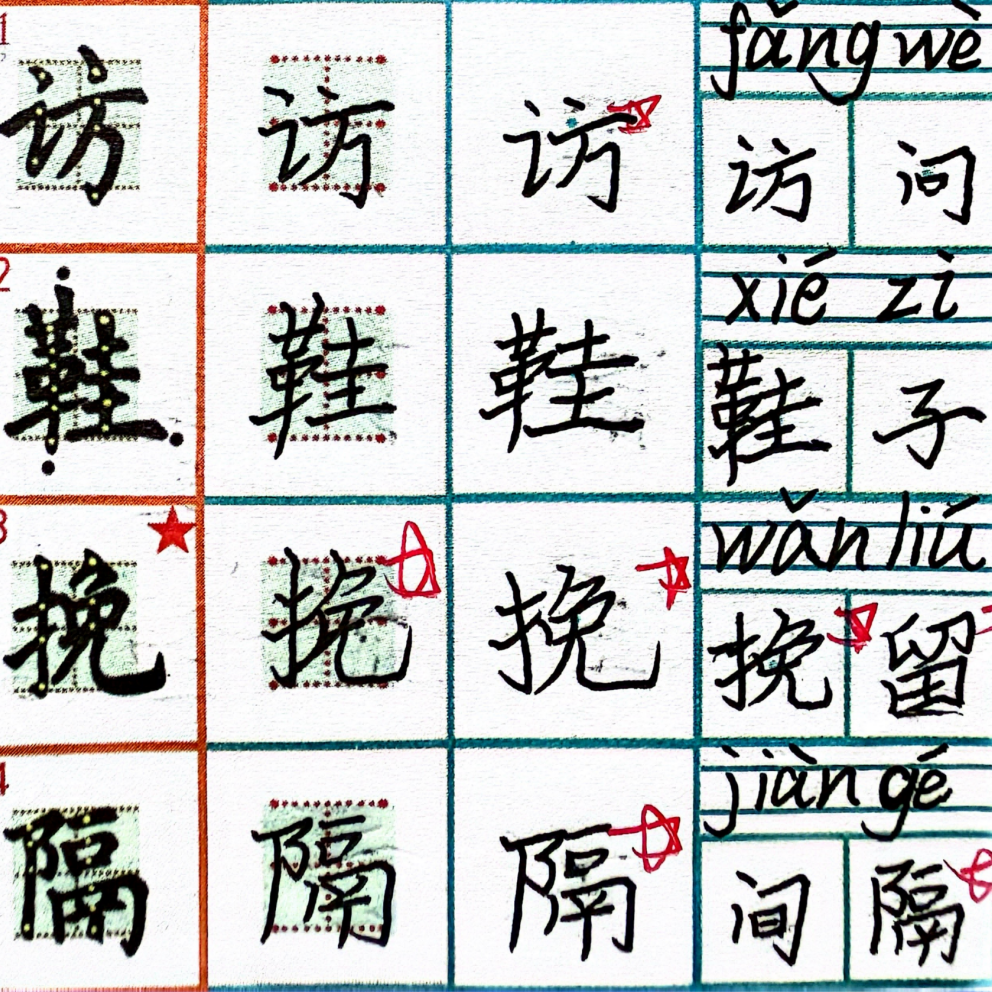 1 访 访 访 fǎng wè
访 问
2 鞋 鞋 鞋 xié zi
鞋 子
3 挽 挽 挽 wǎn liú
挽 留
4 隔 隔 隔 jiàn gé
间 隔